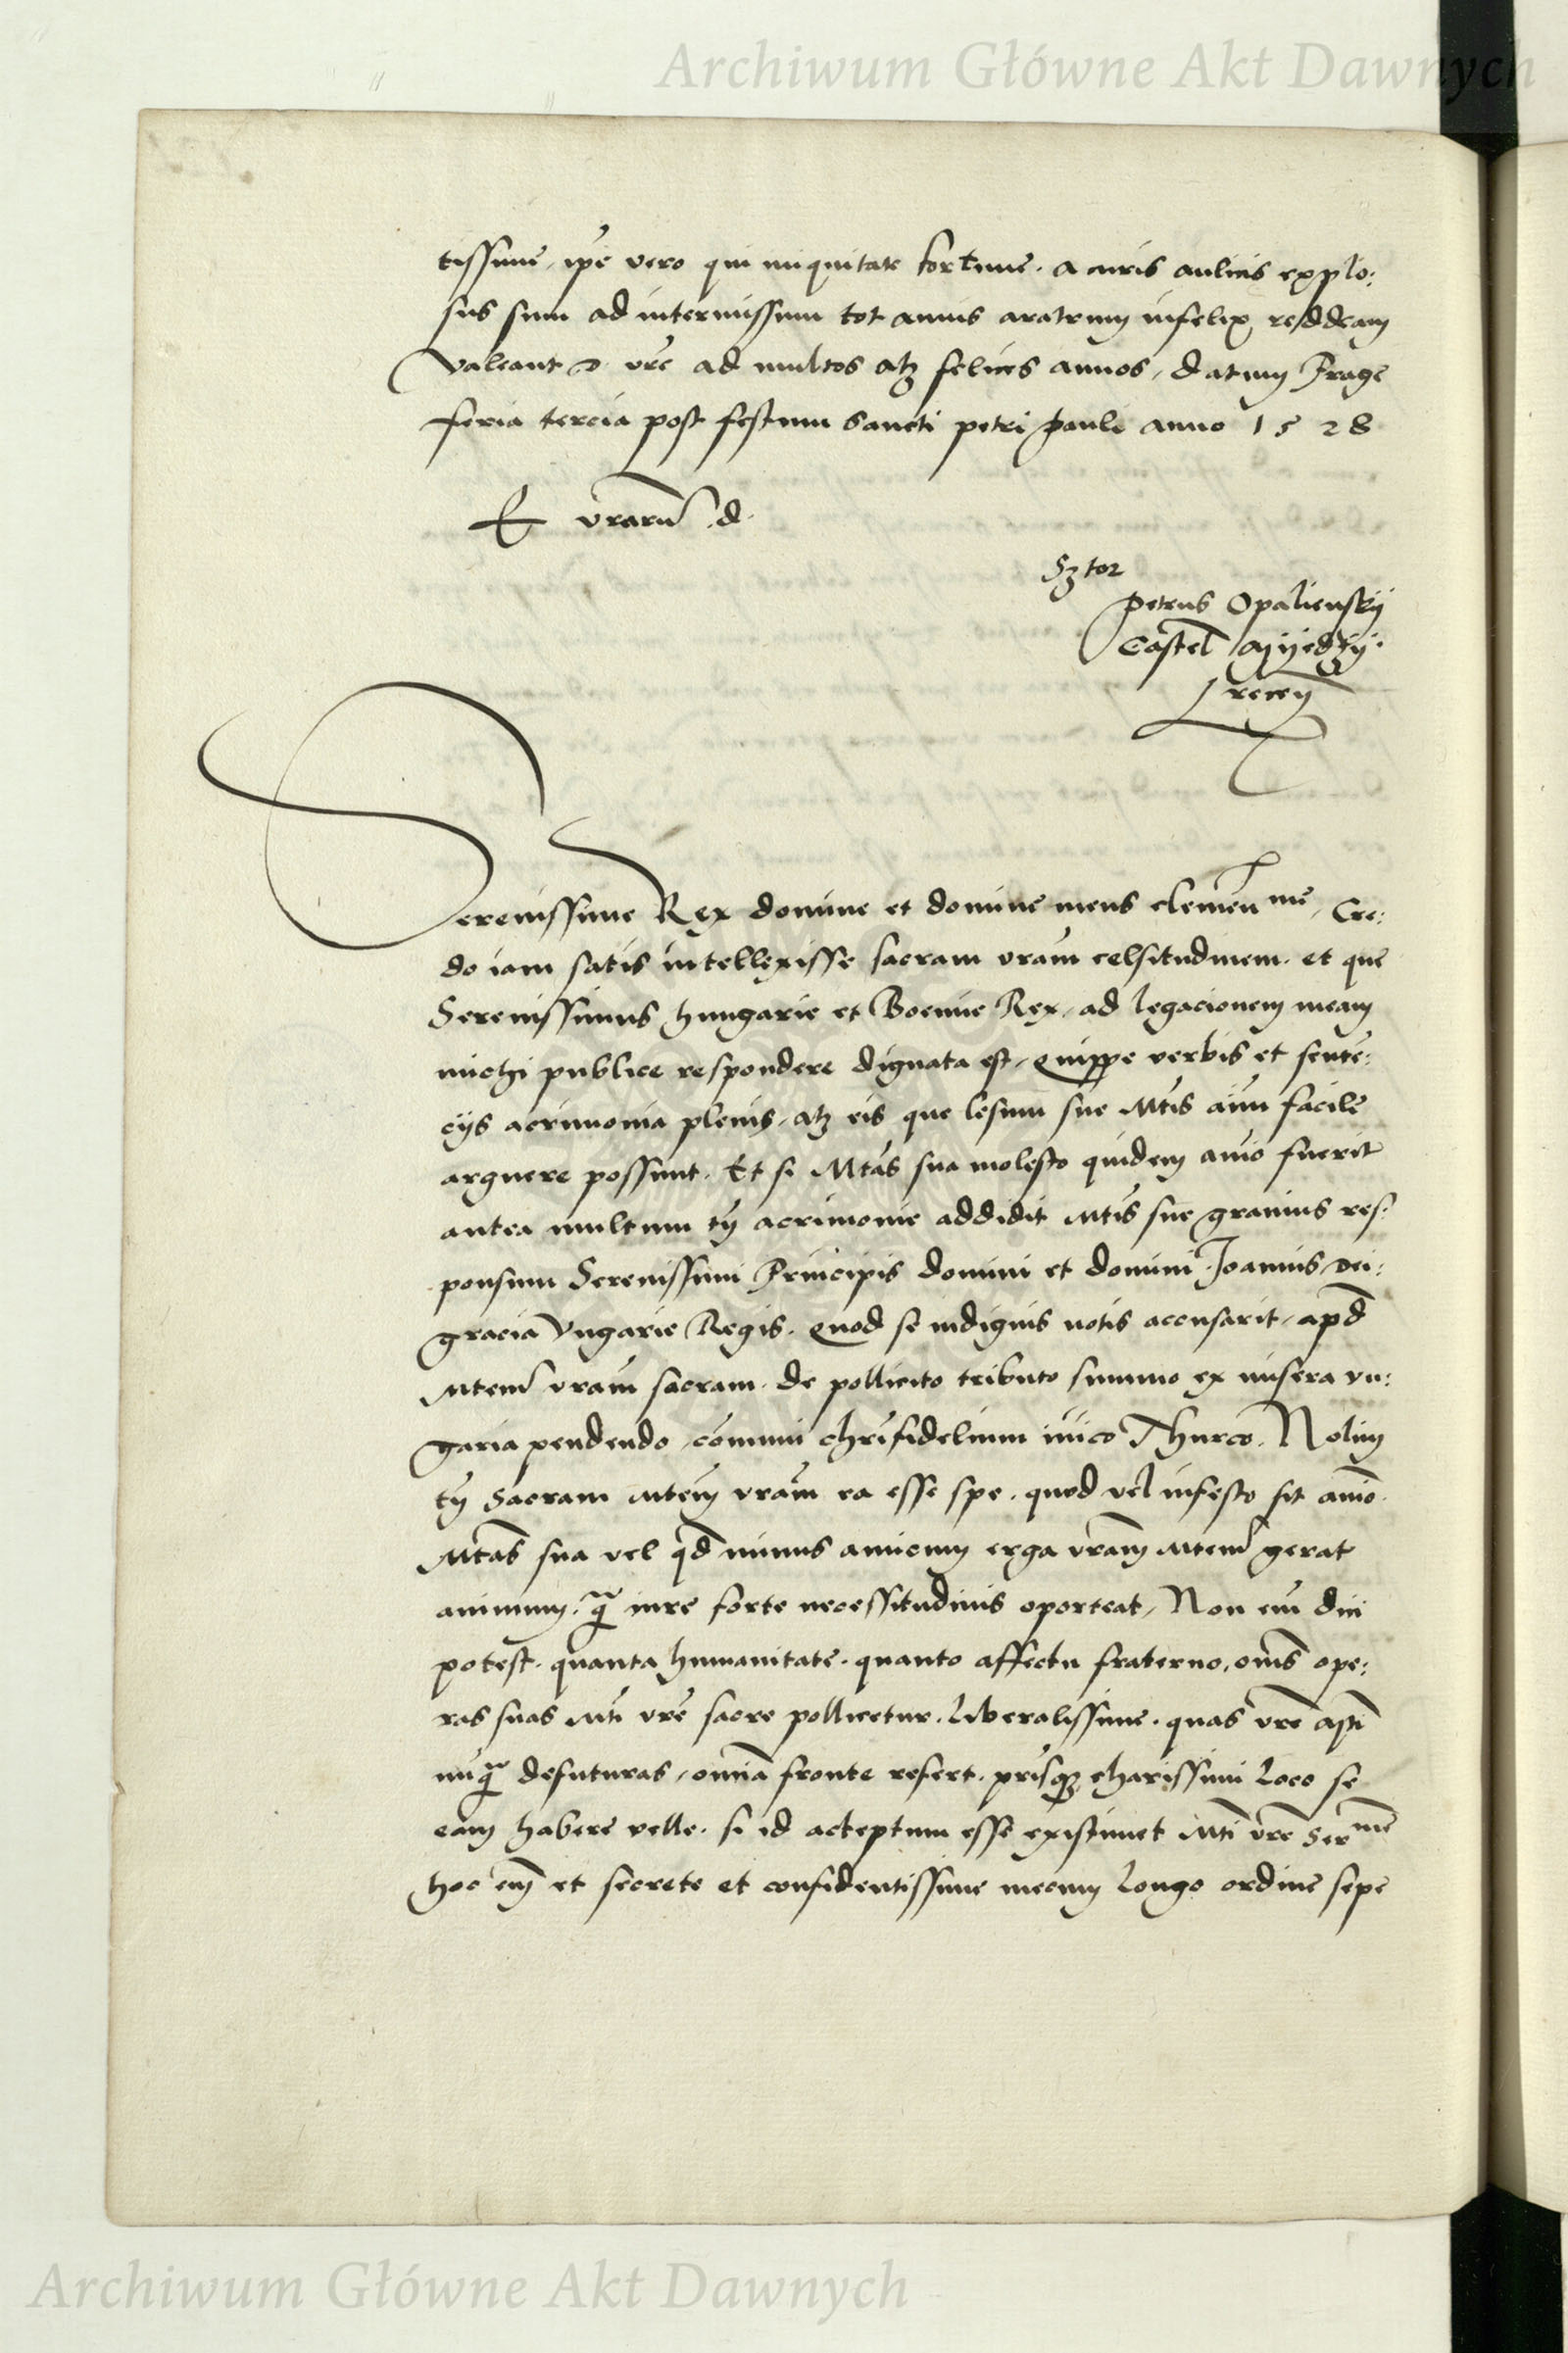 Archiwum Główne Akt Dawnych
tissime, ipē vero qui iniquitate fortune. a curis aulicis explo:
sus sum ad intermissum tot annis aratrum infelix reddeam
Valeant D. vrē ad multos atq felices annos, datum Prage
feria tercia post festum Sancti petri pauli anno 1528
E vrarū d.
petrus Opalienskij
Castel Myedzij.
Serenissime Rex domine et domine meus clemēn me, Cre:
do iam satis intellexisse sacram vram celsitudinem. et que
Serenissimus hungarie et Boemie Rex, ad legacionem meam
michi publice respondere dignata est, quippe verbis et senten:
cijs acrimonia plenis, atq eis que lesum sue Mtis aīum facile
arguere possunt. Et si Mtas sua molesto quidem aīo fuerit
antea multum tn acrimonie addidit Mtis sue gravius res:
ponsum Serenissimi Principis domini et domini Joannis dei:
gracia Vngarie Regis. quod se indignis notis accusarit, apd
Mtem vram sacram. de pollicito tributo summo ex misera vn:
garia pendendo, comuni chrifidelium iīico Thurco. Nolim
tn Sacram Mtem vram ea esse spe. quod vel infesto sit aīmo.
Mtas sua vel qd minus amicum erga vram Mtem gerat
animum. q̄ iure forte necessitudinis oporteat, Non em dici
potest. quanta humanitate. quanto affectu fraterno, oms ope:
ras suas Mti vre sacre pollicetur. Liberalissime. quas vre
nuq̄ defuturas, omnā fronte refert. prisq charissimi Loco se
eam habere velle. si id acceptum esse existimet Mti vre Serme
hoc em et secrete et confidentissime mecum Longo ordine sepe
Archiwum Główne Akt Dawnych